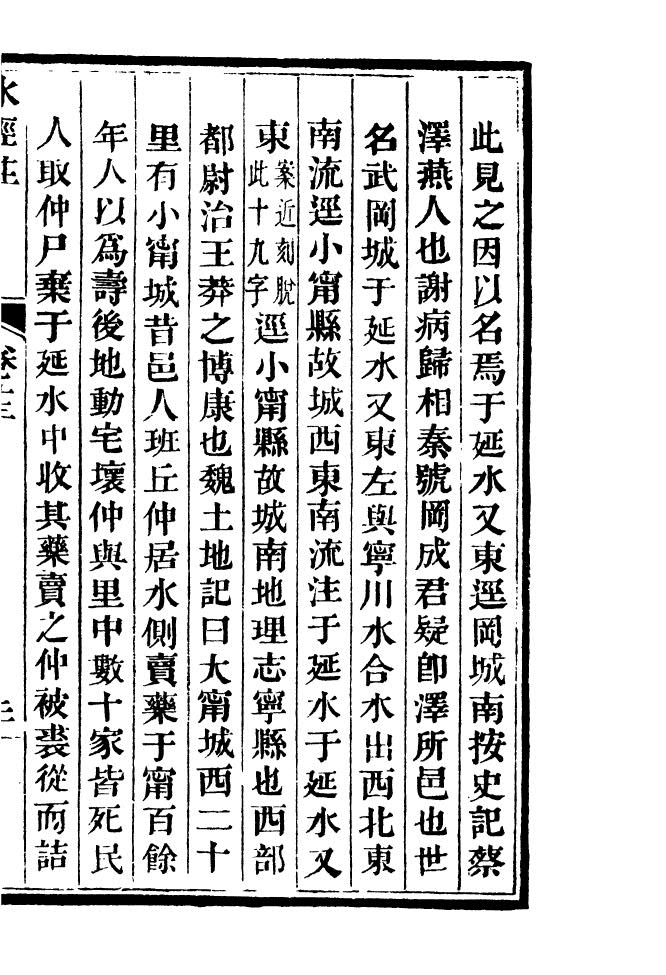 此見之因以名焉于延水又東逕岡城南按史記蔡
澤燕人也謝病歸相秦號岡成君疑卽澤所邑也世
名武岡城于延水又東左與寧川水合水出西北東
南流逕小甯縣故城西東南流注于延水于延水又
東案近刻脫此十九字逕小甯縣故城南地理志寧縣也西部
都尉治王莽之博康也魏土地記曰大甯城西二十
里有小甯城昔邑人班丘仲居水側賣藥于甯百餘
年人以爲壽後地動宅壞仲與里中數十家皆死民
人取仲尸棄于延水中收其藥賣之仲被裘從而詰
水經注
卷十三